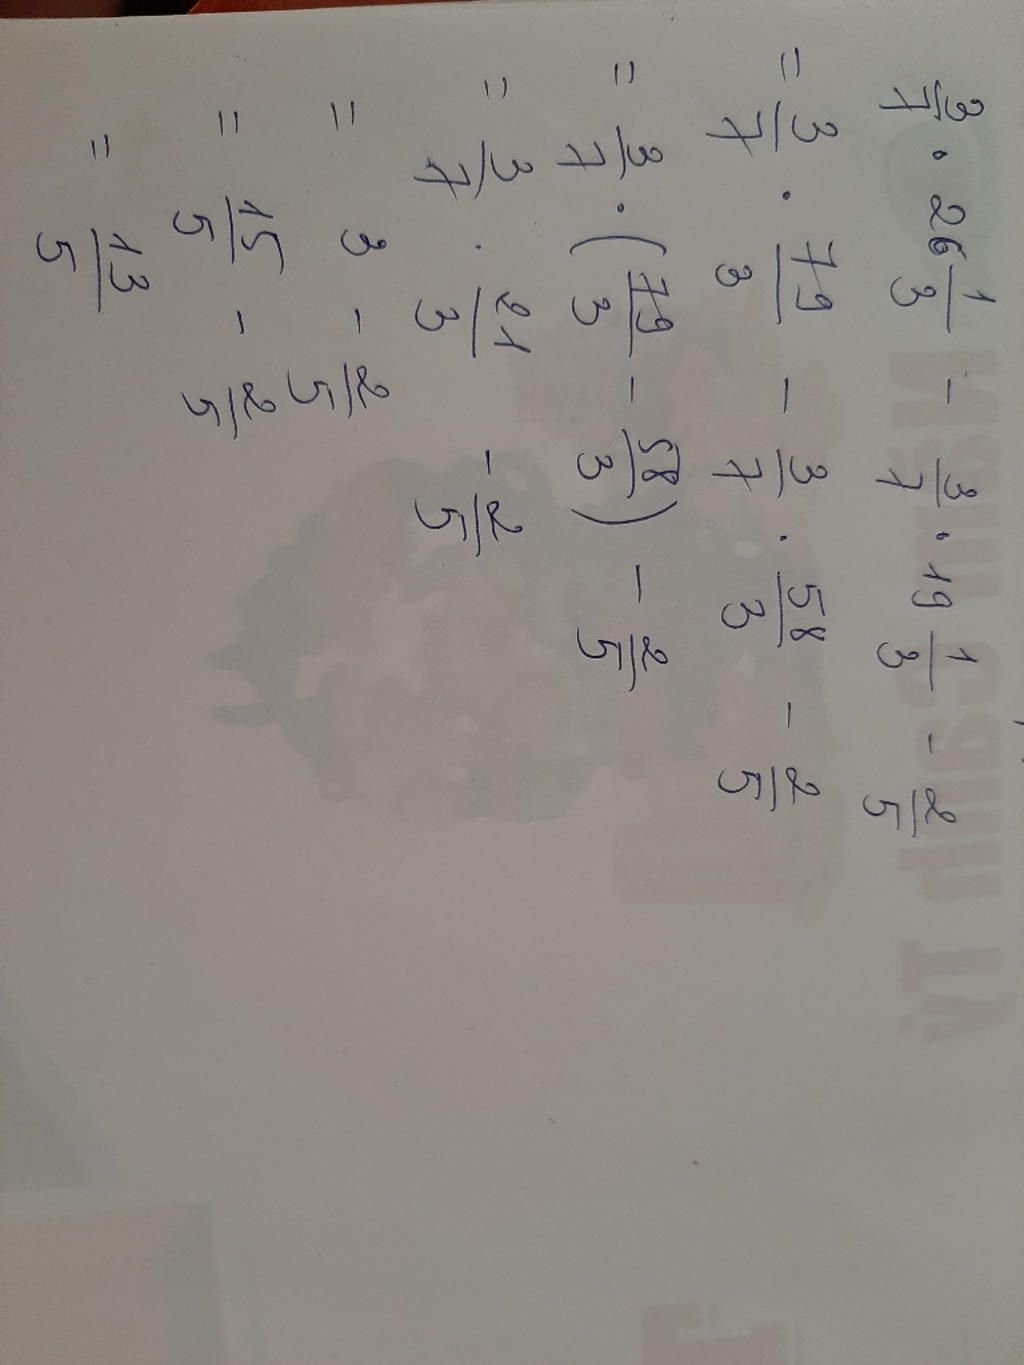 3/7 · 26 1/3 - 3/7 · 19 1/3 - 2/5
= 3/7 · 79/3 - 3/7 · 58/3 - 2/5
= 3/7 · (79/3 - 58/3) - 2/5
= 3/7 · 21/3 - 2/5
= 3 - 2/5
= 15/5 - 2/5
= 13/5